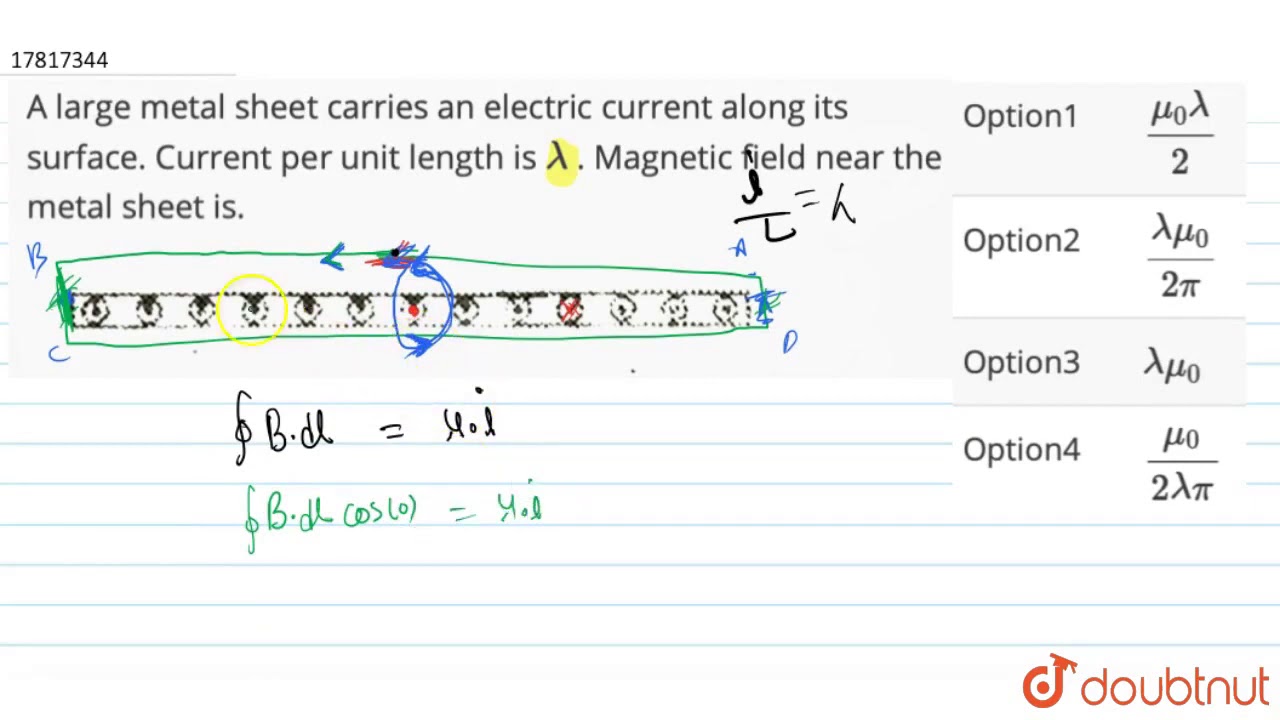 17817344
A large metal sheet carries an electric current along its
surface. Current per unit length is λ . Magnetic field near the
metal sheet is.
i/L = λ
B
A
C
D
∮ B.dl = μ₀i
∮ B.dl cos(0) = μ₀i
Option1 μ₀λ/2
Option2 λμ₀/2π
Option3 λμ₀
Option4 μ₀/2λπ
doubtnut